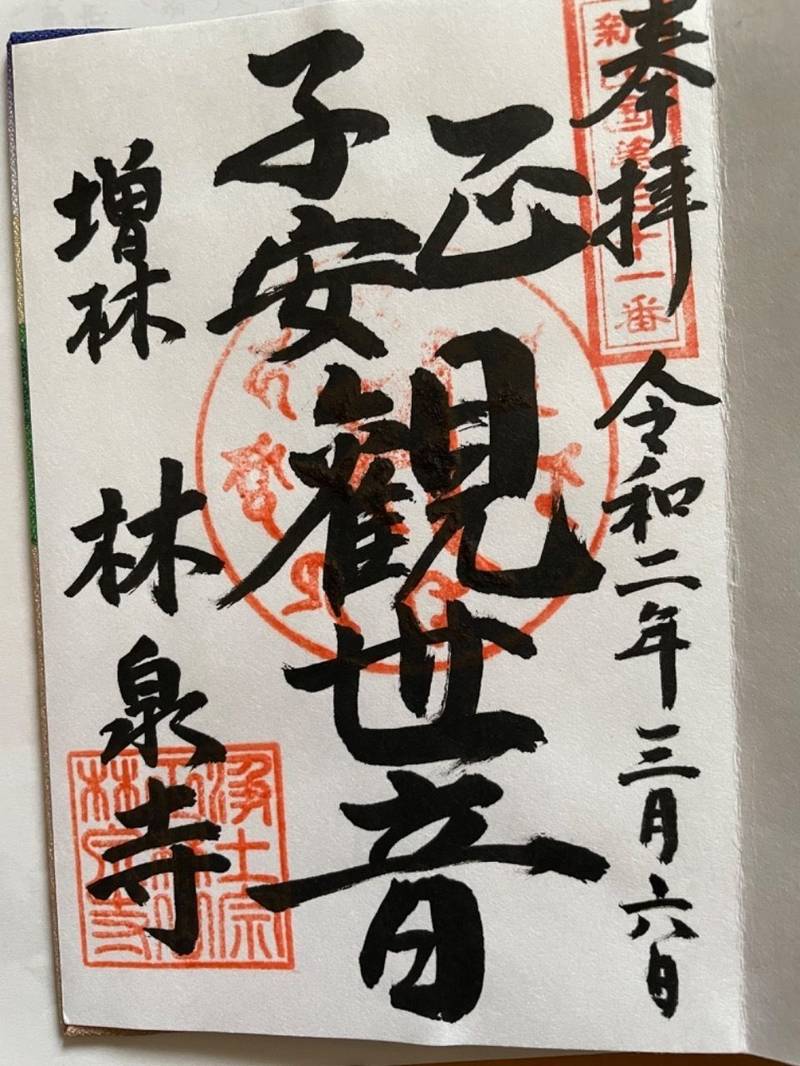 奉拝
令和二年三月六日
正
子安
観世音
増林
林泉寺
十一番
浄土宗
林泉寺